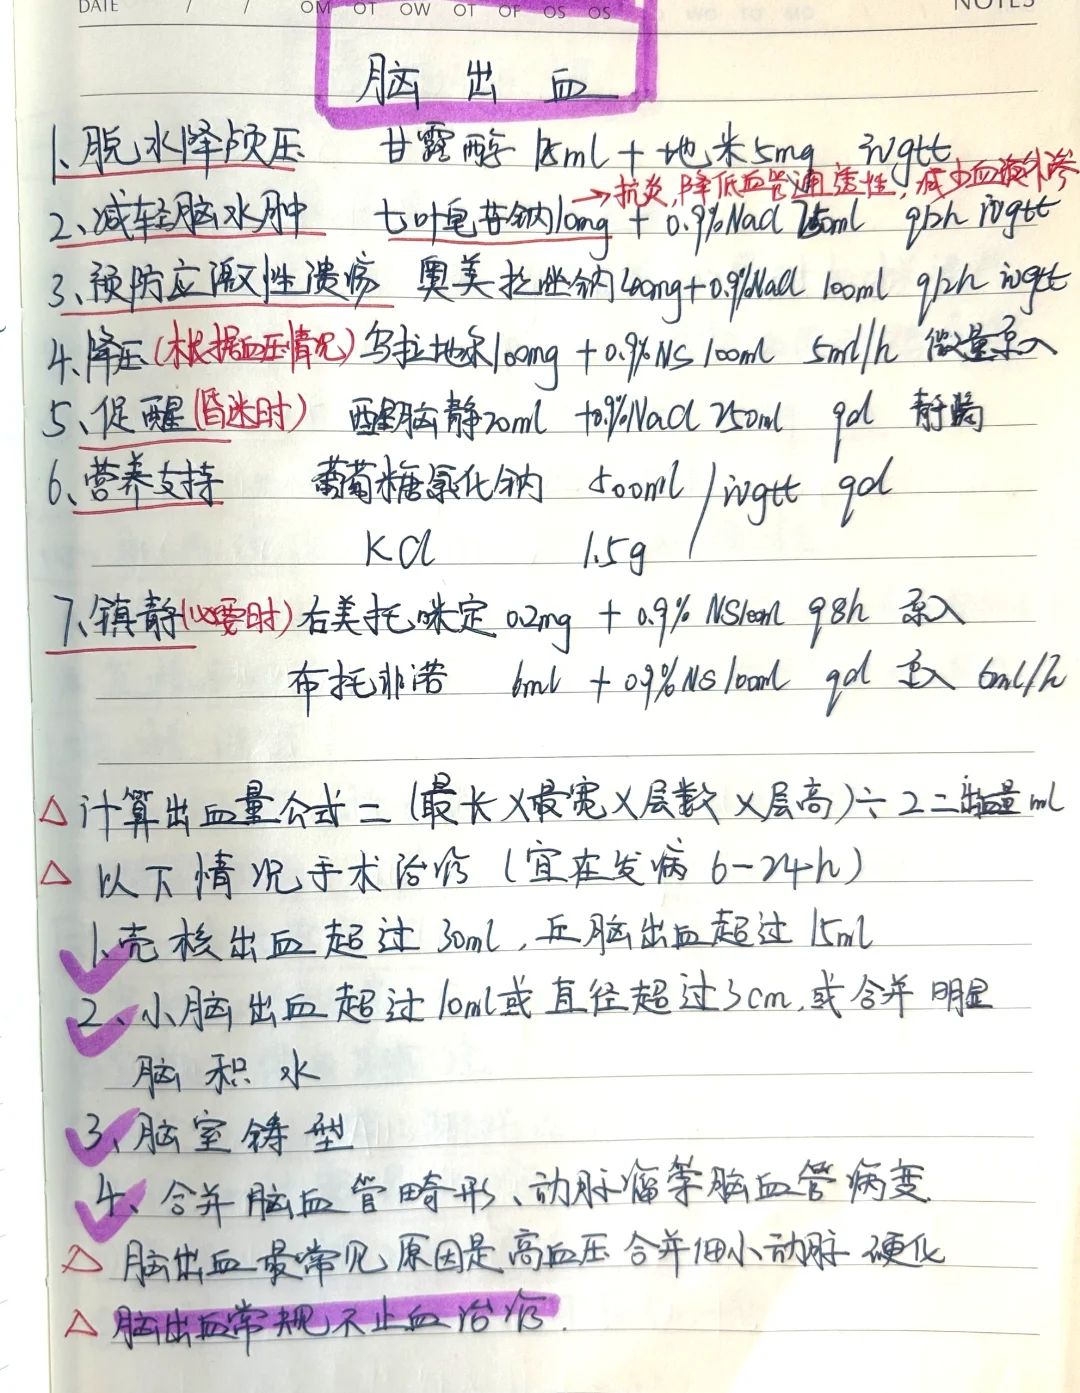 DATE / / OM OT OW OT OF OS OS NOTES
脑出血
1、脱水降颅压 甘露醇 125ml + 地米5mg ivgtt
→抗炎,降低血管通透性,减少血浆外渗
2、减轻脑水肿 七叶皂苷钠10mg + 0.9%Nacl 250ml q12h ivgtt
3、预防应激性溃疡 奥美拉唑钠40mg+0.9%Nacl 100ml q12h ivgtt
4、降压(根据血压情况)乌拉地尔100mg +0.9%NS 100ml 5ml/h 微量泵入
5、促醒(昏迷时) 醒脑静20ml +0.9%Nacl 250ml qd 静滴
6、营养支持 葡萄糖氯化钠 500ml / ivgtt qd
Kcl 1.5g
7、镇静(必要时)右美托咪定 0.2mg + 0.9% NS100ml q8h 泵入
布托啡诺 6ml + 0.9%NS 100ml qd 泵入 6ml/h
△ 计算出血量公式=(最长×最宽×层数×层高)÷2=出血量ml
△ 以下情况手术治疗(宜在发病6-24h)
1、壳核出血超过30ml,丘脑出血超过15ml
2、小脑出血超过10ml或直径超过3cm,或合并明显
脑积水
3、脑室铸型
4、合并脑血管畸形、动脉瘤等脑血管病变
△ 脑出血最常见原因是高血压合并细小动脉硬化
△ 脑出血常规不止血治疗.